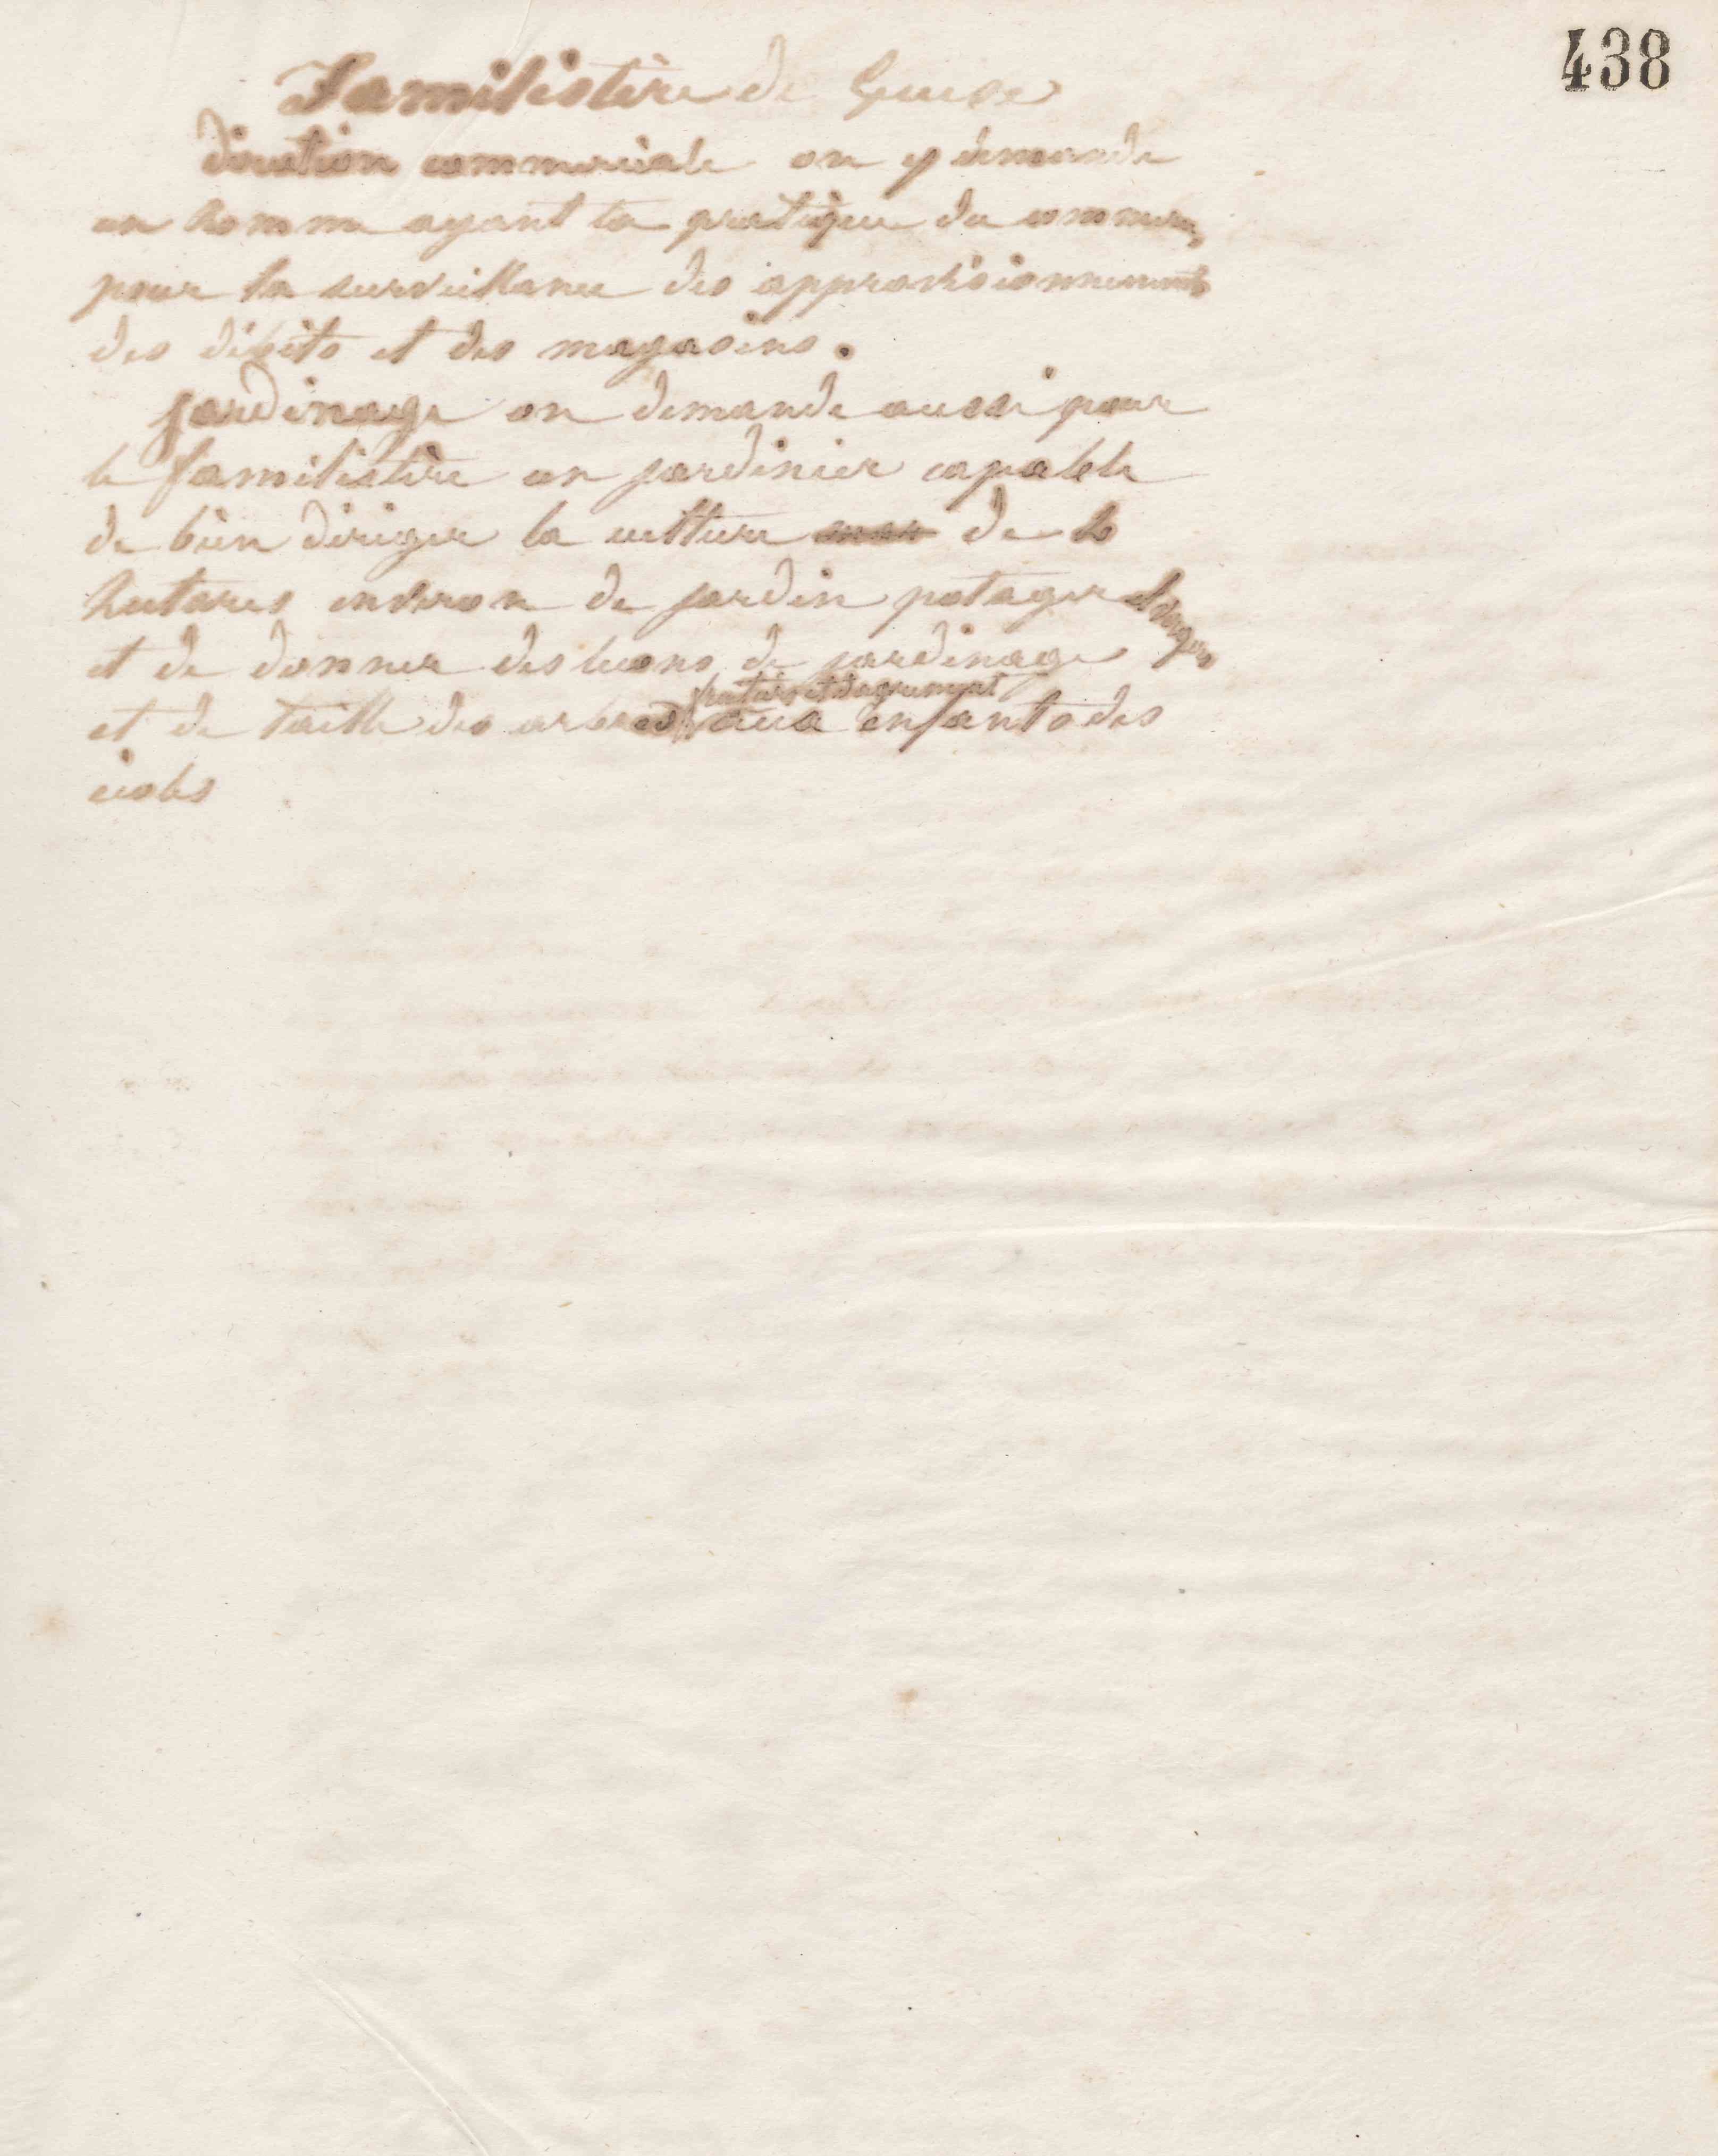 438
Familistère de Guise
direction commerciale on y demande
un homme ayant la pratique du commerce
pour la surveillance des approvisionnements
des débits et des magasins.
jardinage on demande aussi pour
le familistère un jardinier capable
de bien diriger la culture de
hectares environ de jardin potager et verger
et de donner des leçons de jardinage
fruitiers et d'agrément
et de taille des arbres aux enfants des
écoles